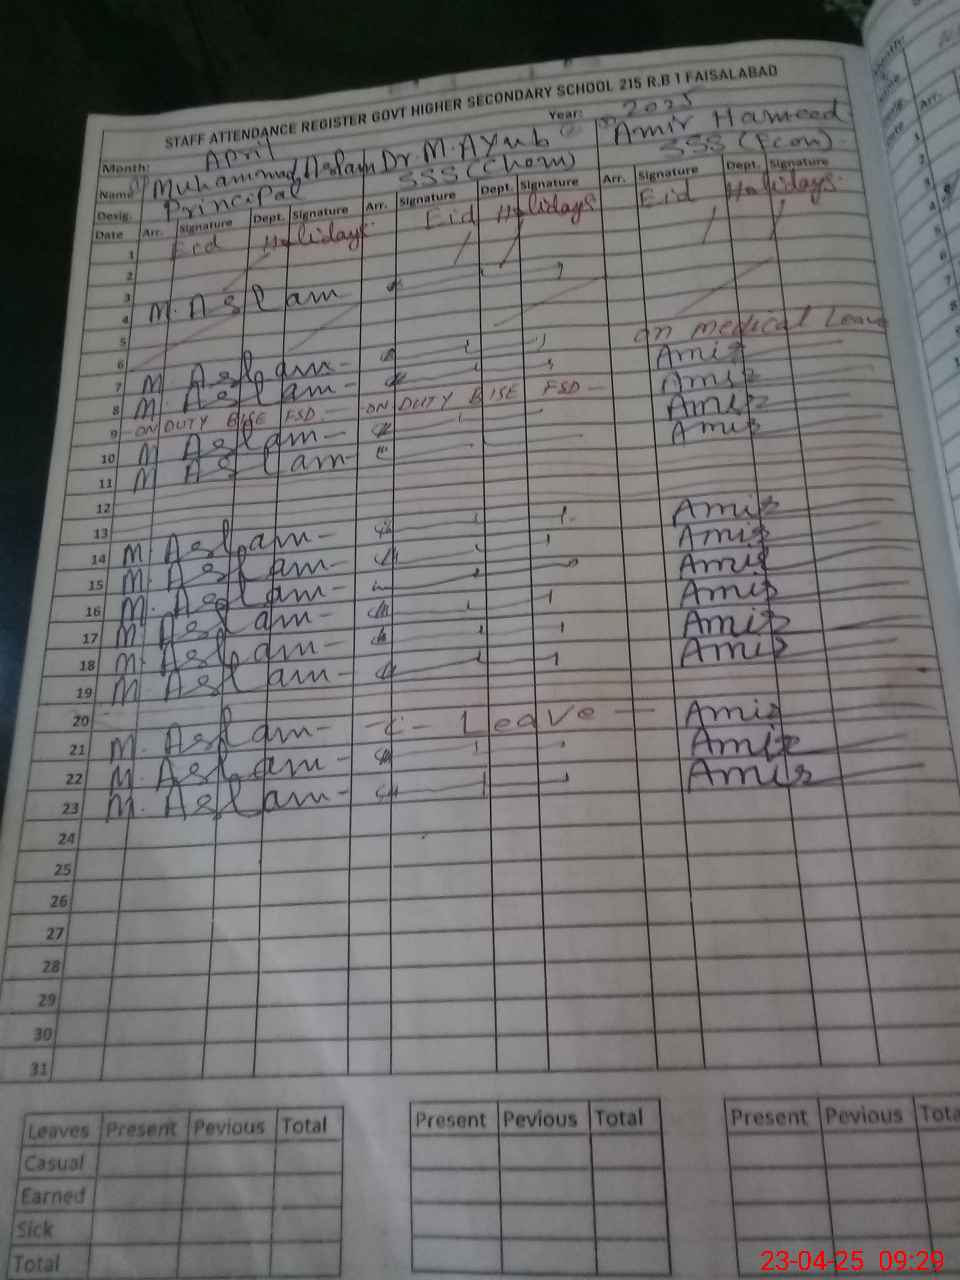 STAFF ATTENDANCE REGISTER GOVT HIGHER SECONDARY SCHOOL 215 R.B 1 FAISALABAD
Month: April Year: 2025
Name Muhammad Aslam Dr. M. Ayub Amir Hameed
Desig. Principal SSS (Chem) SSS (Econ)
Date Arr. Signature Dept. Signature Arr. Signature Dept. Signature Arr. Signature Dept. Signature
1 Eid Holidays Eid Holidays Eid Holidays
2
3
4 M. Aslam
5
6 on medical Leave
7 M. Aslam Amir
8 M. Aslam Amir
9 ON DUTY BISE FSD. ON DUTY BISE FSD Amir
10 M Aslam Amir
11 M Aslam
12
13 Amir
14 M. Aslam Amir
15 M. Aslam Amir
16 M. Aslam Amir
17 M. Aslam Amir
18 M. Aslam Amir
19 M. Aslam
20
21 M. Aslam Leave Amir
22 M. Aslam Amir
23 M. Aslam Amir
24
25
26
27
28
29
30
31
Leaves Present Pevious Total Present Pevious Total Present Pevious Tota
Casual
Earned
Sick
Total
23-04-25 09:29